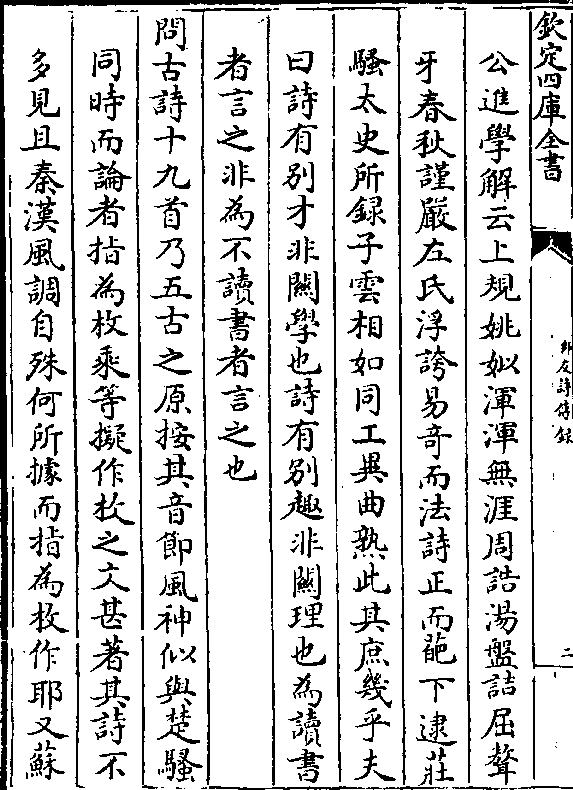 欽定四庫全書
師友詩傳錄
二
公進學解云上規姚姒渾渾無涯周誥湯盤詰屈聱
牙春秋謹嚴左氏浮誇易奇而法詩正而葩下逮莊
騷太史所録子雲相如同工異曲熟此其庶幾乎夫
曰詩有別才非闗學也詩有別趣非闗理也為讀書
者言之非為不讀書者言之也
問古詩十九首乃五古之原按其音節風神似與楚騷
同時而論者指為枚乘等擬作枚之文甚著其詩不
多見且秦漢風調自殊何所據而指為枚作耶又蘇